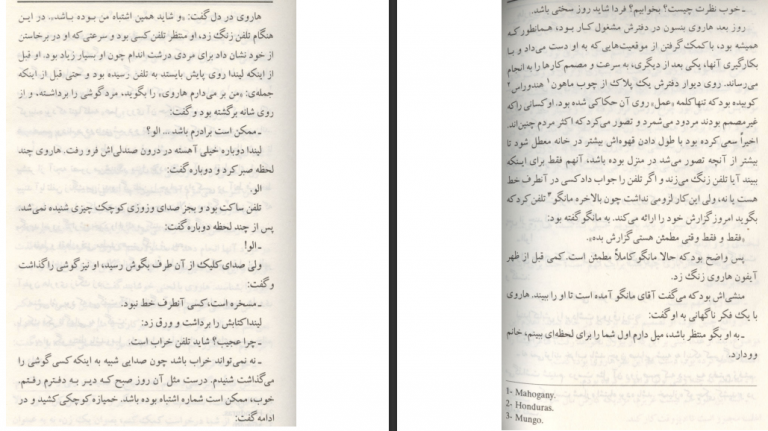 هاروی در دل گفت: «و شاید همین اشتباه من بوده باشد.» در این
هنگام تلفن زنگ زد، او منتظر تلفن کسی بود و سرعتی که او در برخاستن
از خود نشان داد برای مردی درشت اندام چون او بسیار زیاد بود. او قبل
از اینکه لیندا روی پایش بایستد به تلفن رسیده بود و حتی قبل از اینکه
جمله‌ی: «من بر می‌دارم هاروی» را بگوید، مرد گوشی را برداشته، و از
روی شانه برگشته بود و گفت:
ـ ممکن است برادرم باشد ... الو؟
لیندا دوباره خیلی آهسته در درون صندلی‌اش فرو رفت. هاروی چند
لحظه صبر کرد و دوباره گفت:
الو.
تلفن ساکت بود و بجز صدای وزوزی کوچک چیزی شنیده نمی‌شد.
پس از چند لحظه دوباره گفت:
ـ الو!
ولی صدای کلیک از آن طرف بگوش رسید، او نیز گوشی را گذاشت
و گفت:
ـ مسخره است، کسی آنطرف خط نبود.
لیندا کتابش را برداشت و ورق زد:
ـ چرا عجیب؟ شاید تلفن خراب است.
ـ نه نمی‌تواند خراب باشد چون صدایی شبیه به اینکه کسی گوشی را
می‌گذاشت شنیدم. درست مثل آن روز صبح که دیر به دفترم رفتم.
خوب، ممکن است شماره اشتباه بوده باشد. خمیازه کوچکی کشید و در
ادامه گفت:
ـ خوب نظرت چیست؟ بخوابیم؟ فردا شاید روز سختی باشد.
روز بعد هاروی بنسون در دفترش مشغول کار بود، همانطور که
همیشه بود، با کمک گرفتن از موقعیت‌هایی که به او دست می‌داد و با
بکارگیری آنها، یکی بعد از دیگری، به سرعت و مصمم کارها را به انجام
می‌رساند. روی دیوار دفترش یک پلاک از چوب ماهون¹ هندوراس²
کوبیده بود که تنها کلمه «عمل» روی آن حکاکی شده بود. او کسانی را که
غیرمصمم بودند مردود می‌شمرد و تصور می‌کرد که اکثر مردم چنین‌اند.
اخیراً سعی کرده بود با طول دادن قهوه‌اش بیشتر در خانه معطل شود تا
بیشتر از آنچه تصور می‌شد در منزل بوده باشد، آنهم فقط برای اینکه
ببیند آیا تلفن زنگ می‌زند و اگر تلفن را جواب داد کسی در آنطرف خط
هست یا نه، ولی این کار لزومی نداشت چون بالاخره مانگو³ تلفن کرد که
بگوید امروز گزارش خود را ارائه می‌کند. به مانگو گفته بود:
«فقط و فقط وقتی مطمئن هستی گزارش بده»
پس واضح بود که حالا مانگو کاملاً مطمئن است. کمی قبل از ظهر
آیفون هاروی زنگ زد.
منشی‌اش بود که می‌گفت آقای مانگو آمده است تا او را ببیند. هاروی
با یک فکر ناگهانی به او گفت:
ـ به او بگو منتظر باشد، میل دارم اول شما را برای لحظه‌ای ببینم، خانم
وودارد.
1- Mahogany.
2- Honduras.
3- Mungo.